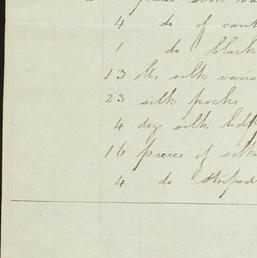 4 do of cant
1 do black
13 lbs silk vario
23 silk pocks
4 doz silk hdf
16 pieces of silk
4 do striped